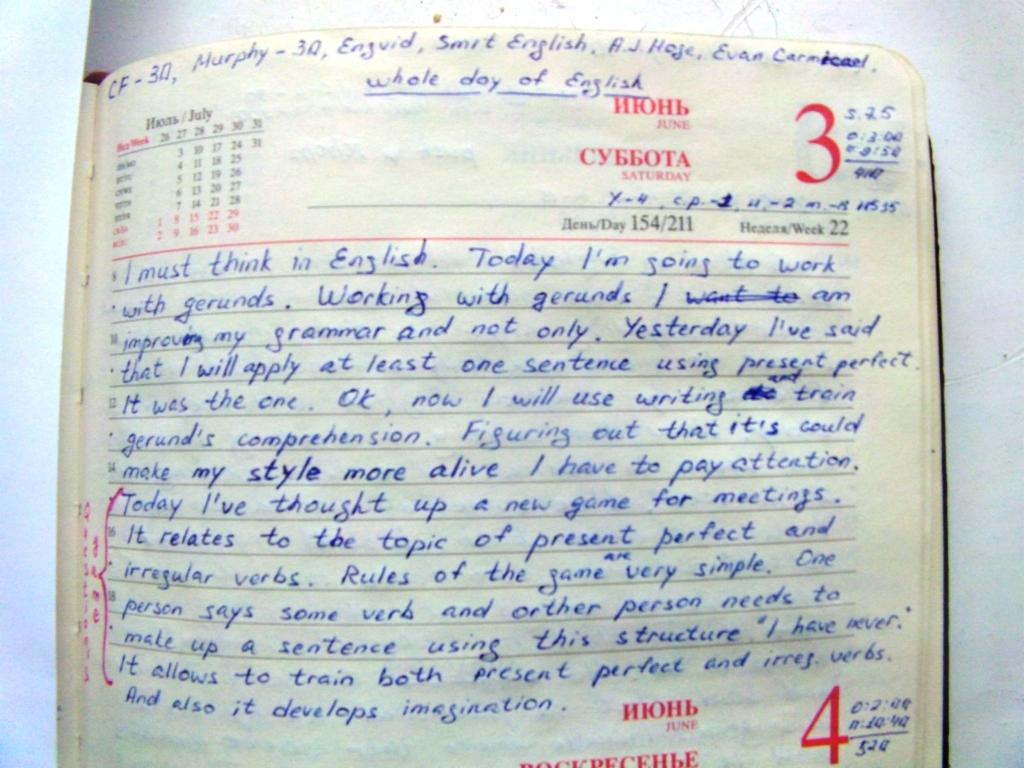 CF - 30, Murphy - 30, Engvid, Smrt English, A.J. Hoge, Evan Carmicael.
whole day of English
Июль / July
Нед/Week 26 27 28 29 30 31
3 10 17 24 31
4 11 18 25
5 12 19 26
6 13 20 27
7 14 21 28
1 8 15 22 29
2 9 16 23 30
ИЮНЬ
JUNE
СУББОТА
SATURDAY
3
5.25
День/Day 154/211
Неделя/Week 22
I must think in English. Today I'm going to work
with gerunds. Working with gerunds I want to am
10 improving my grammar and not only. Yesterday I've said
that I will apply at least one sentence using present perfect.
12 It was the one. Ok, now I will use writing and train
gerund's comprehension. Figuring out that it's could
14 make my style more alive I have to pay attention.
Today I've thought up a new game for meetings.
16 It relates to the topic of present perfect and
irregular verbs. Rules of the game are very simple. One
18 person says some verb and orther person needs to
make up a sentence using this structure "I have never."
It allows to train both present perfect and irreg. verbs.
And also it develops imagination.
Questions game
ИЮНЬ
JUNE
ВОСКРЕСЕНЬЕ
4
520